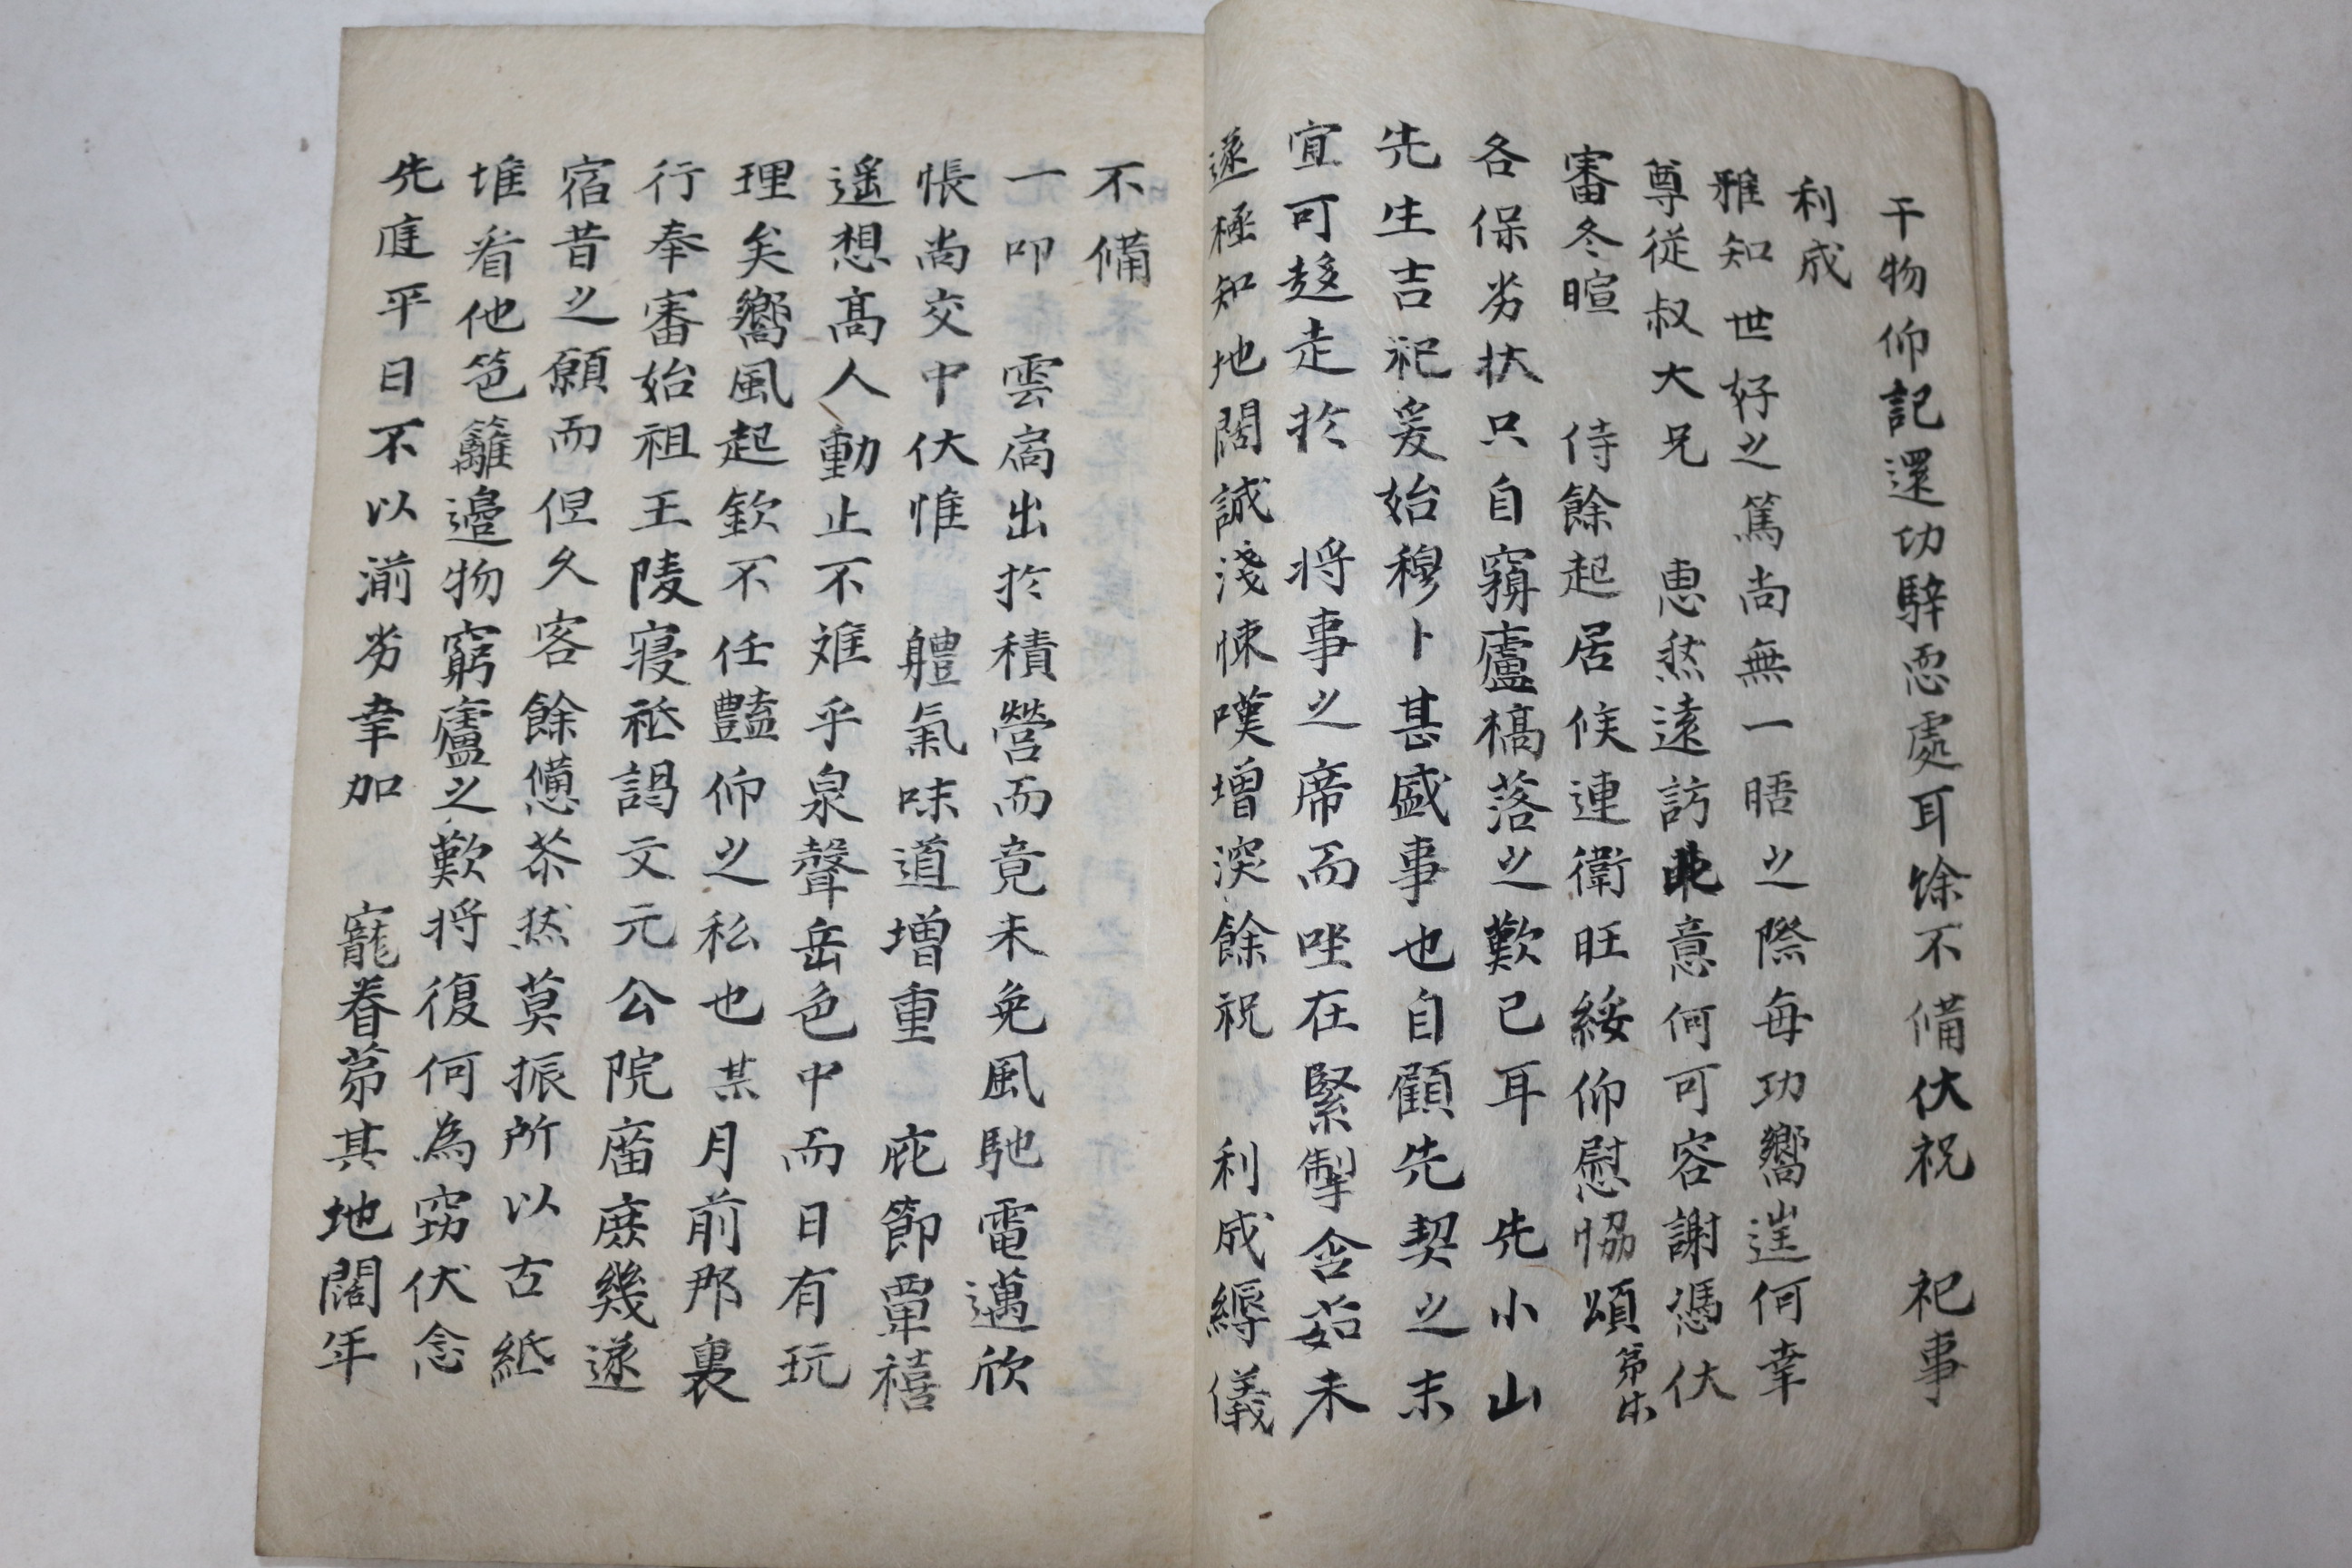 干物仰記還切騂恧處耳餘不備伏祝 祀事
利成
雅知世好之篤尚無一晤之際每切嚮迬何幸
尊從叔大兄 惠然遠訪此意何可容謝憑伏
審冬暄 侍餘起居候連衛旺綏仰慰恊頌弟生
各保劣狀只自竊廬槁落之歎已耳 先小山
先生吉祀爰始穆卜甚盛事也自顧先契之末
宜可趍走於 將事之席而唑在緊掣含茹未
遂極知地闊誠淺悚嘆增深餘祝 利成縟儀
不備
一叩 雲扃出於積營而竟未免風馳電邁欣
悵尚交中伏惟 軆氣味道增重 庇節覃禧
遥想高人動止不難乎泉聲岳色中而日有玩
理矣嚮風起欽不任豔仰之私也某月前那裏
行奉審始祖王陵寢祗謁文元公院庿庶幾遂
宿昔之願而但久客餘憊苶然莫振所以古紙
堆看他笆籬邉物窮廬之歎將復何為窃伏念
先庭平日不以湔劣幸加 寵眷第其地闊年